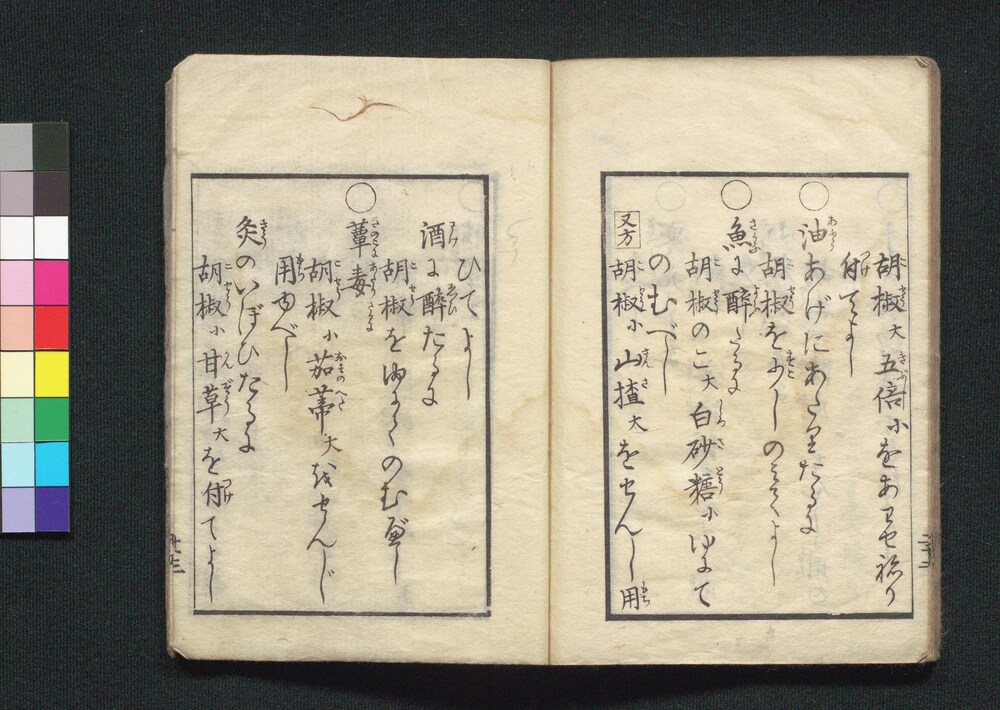 胡椒大五倍小をあわせ程り
付てよし
油あげにあたりたるに
胡椒を少しのみてよし
魚に醉たるに
胡椒のこ大白砂糖小ゆにて
のむべし
又方
胡椒小山摣大をせんし用
ひてよし
酒に醉たるに
胡椒をゆにてのむべし
蕈毒
胡椒小茄蔕大をせんじ
用ゆべし
灸のいぼひたるに
胡椒小甘草大を付てよし